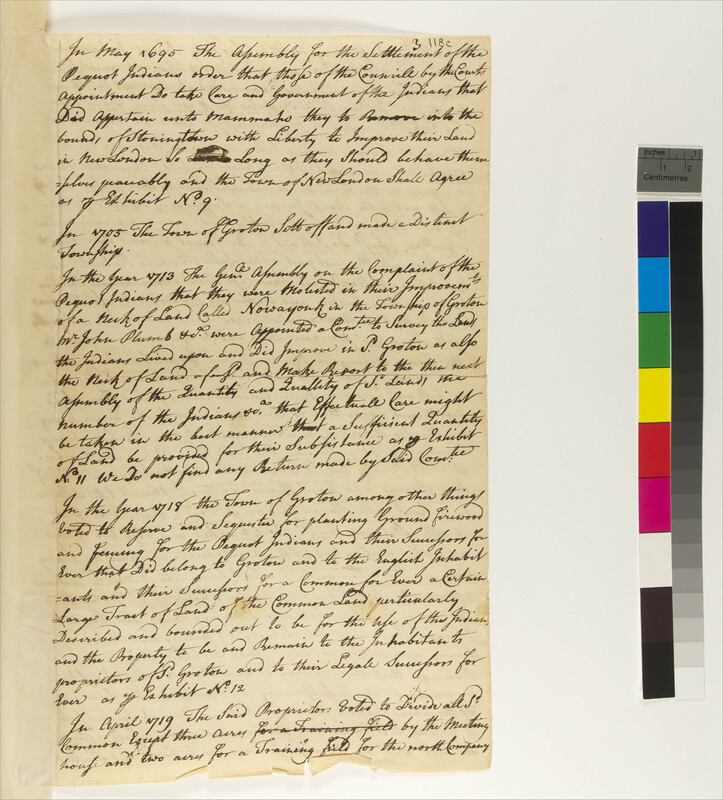 3 118c
In May 1695 The Assembly for the Settlement of the
Pequot Indians order that those of the Councile by the Courts
Appointment Do take Care and Government of the Indians that
Did Appertain unto Mammaho they to Remove into the
bounds of Stoningtown with Liberty to Improve their Land
in New London so Long as they Should behave them
=selves peaceably and the Town of New London Shall Agree
as ye Exhibit No 9.
In 1705 The Town of Groton Sett off and made a Distinct
Township.
In the Year 1713 The Genll Assembly on the Complaint of the
Pequot Indians that they were Molested in their Improvemts
of a Neck of Land Called Nowayonk in the Township of Groton
Mr John Plumb &c. were Appointed a Comtee to Survey the Lands
the Indians Lived upon and Did Improve in Sd Groton as also
the Neck of Land afsd and Make Report to the then next
Assembly of the Quantity and Quallety of Sd Land, the
number of the Indians &c. that Effectuall Care might
be taken in the best manner that a Suffitient Quantity
of Land be provided for their Subsistance as ye Exhibit
No 11 We Do not find any Return made by Said Comtee
In the Year 1718 the Town of Groton among other things
Voted to Reserve and Sequester for planting Ground firewood
and fencing for the Pequot Indians and their Successors for
Ever that Did belong to Groton and to the English Inhabit
=ants and their Successors for a Common for Ever a Certain
Large Tract of Land of the Common Land perticularly
Described and bounded out to be for the use of the Indians
and the Property to be and Remain to the Inhabitants
proprietors of Sd Groton and to their Legale Successors for
Ever as ye Exhibit No. 12
In April 1719 The Said Proprietors Voted to Divide all Sd
Common Except three acres for a Training field by the Meeting
house and two acres for a Training field for the north Company
Inches 1
1 2
Centimetres